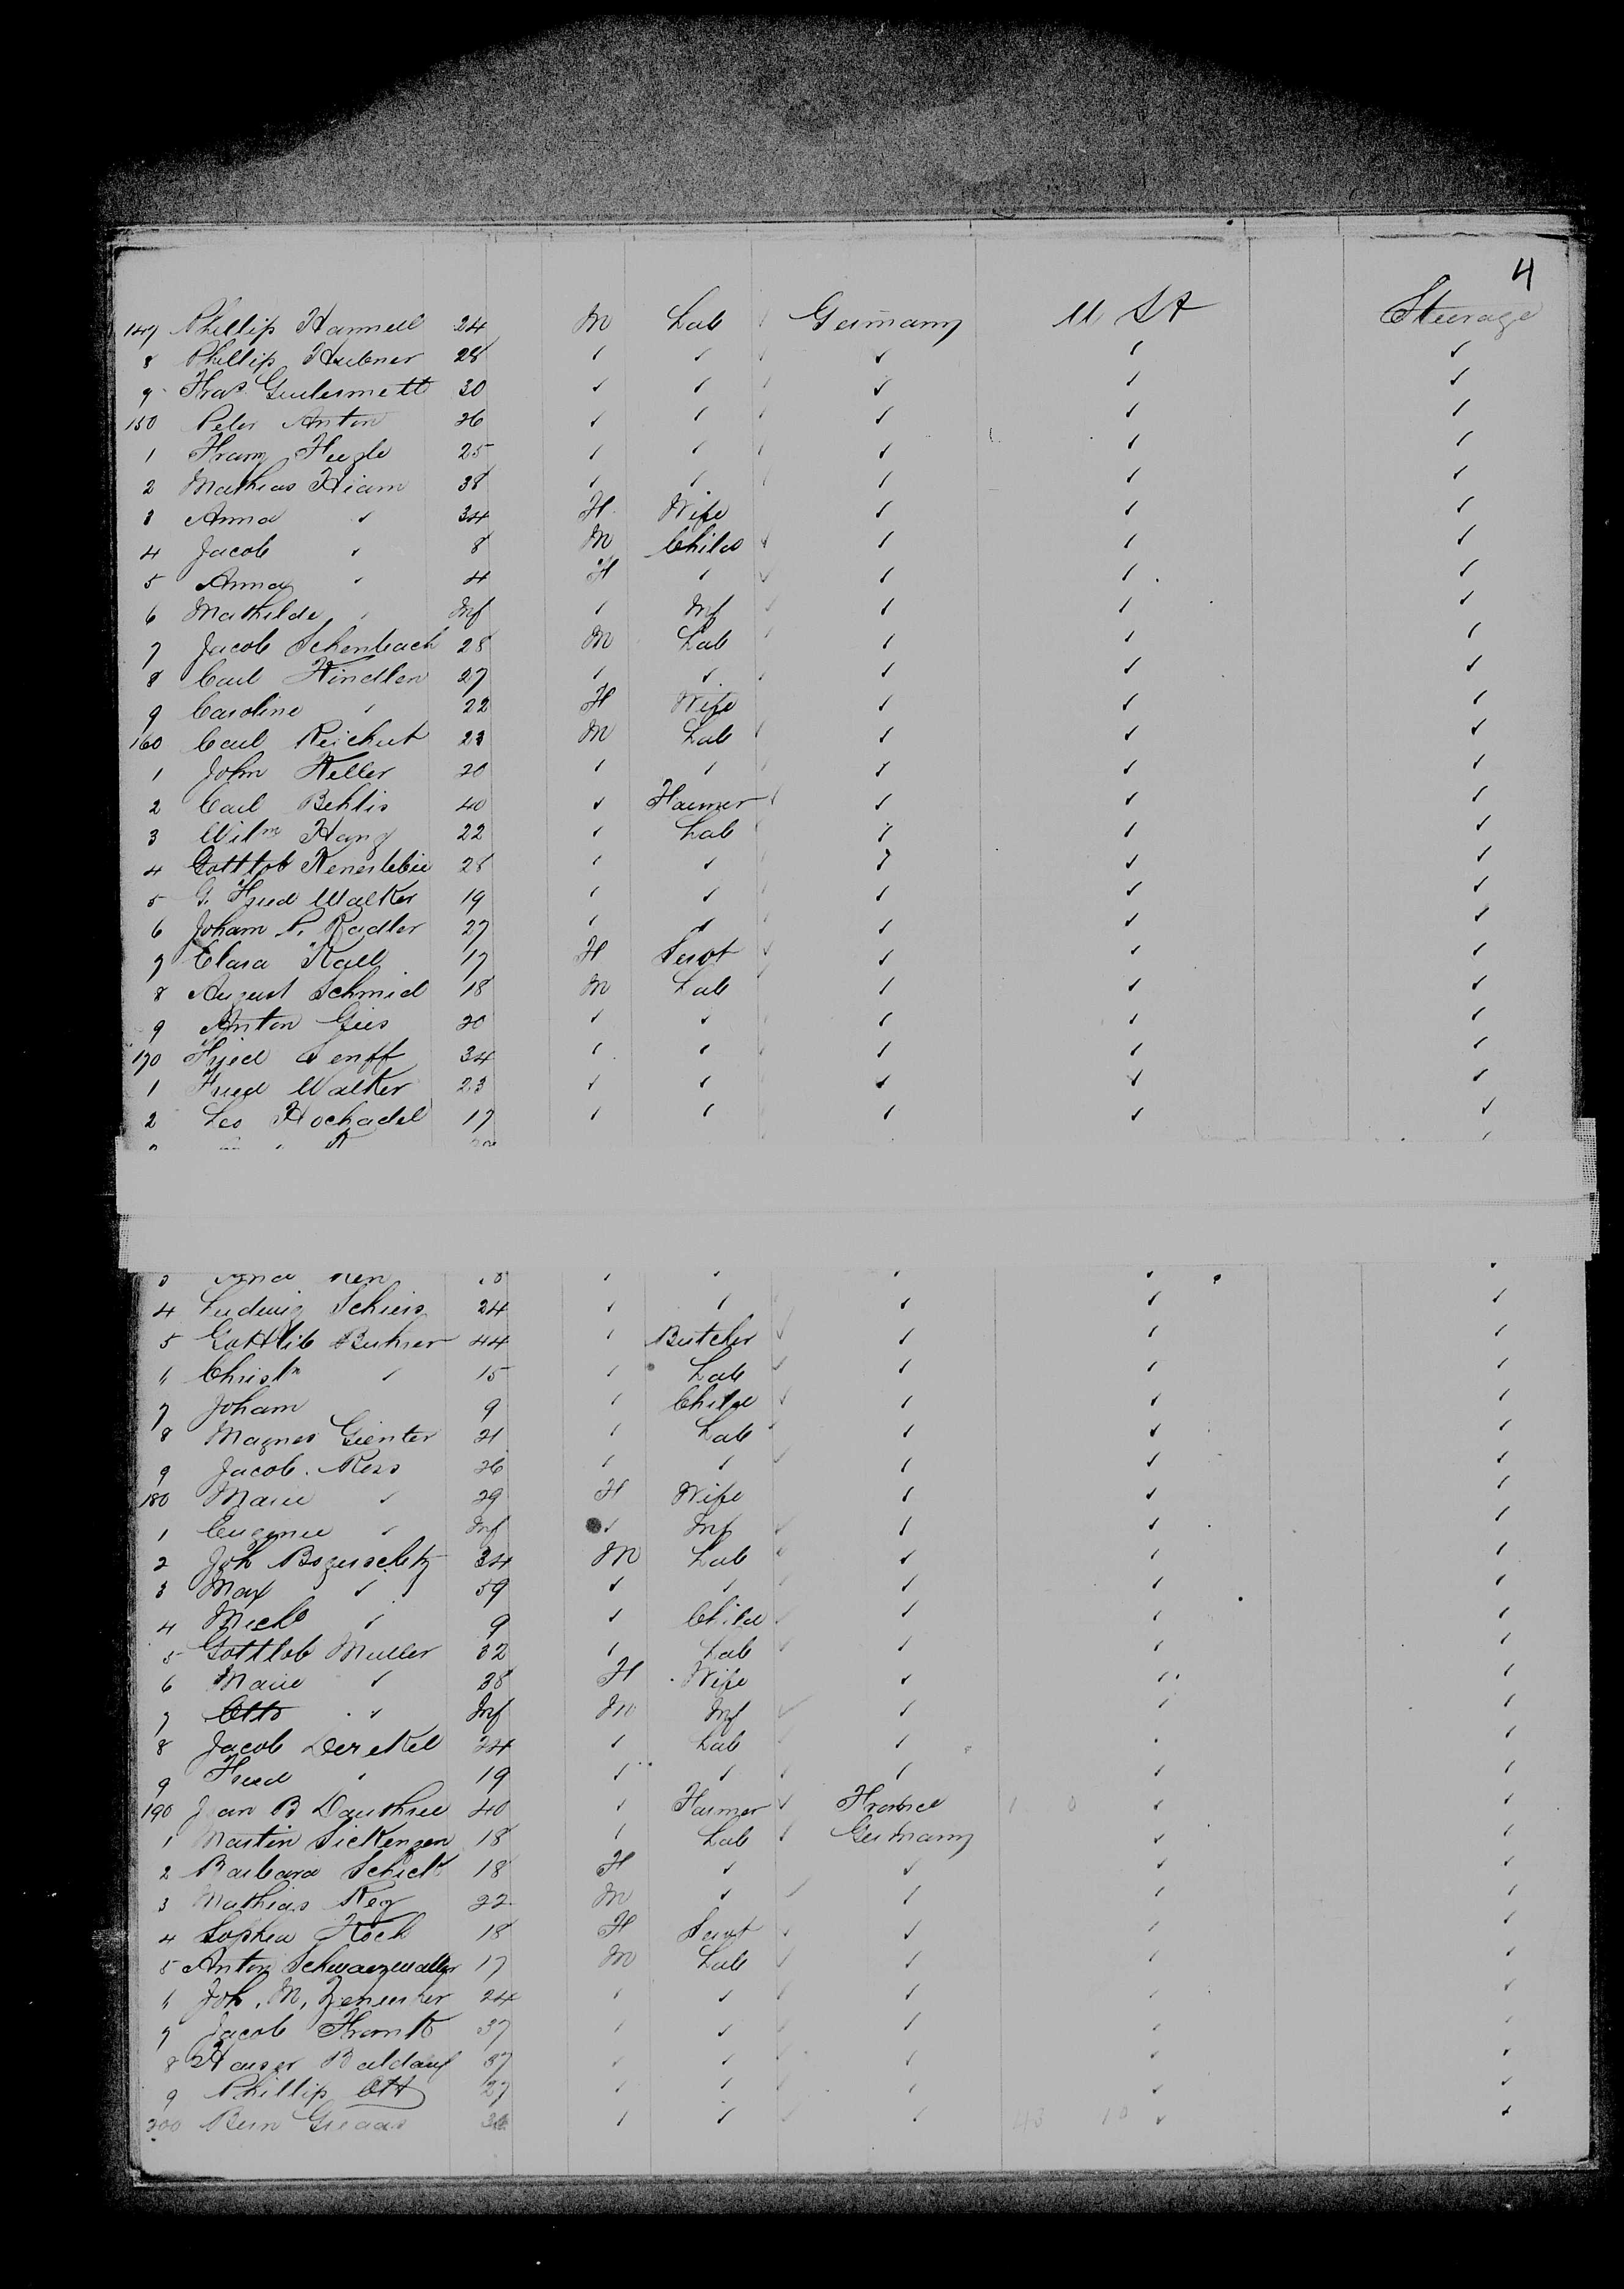 4
147 Phillip Hammell 24 M Lab Germany U. St Steerage
8 Phillip Hubner 28 " " " " "
9 Fras. 30 " " " " "
150 Peter Anton 26 " " " " "
1 Franz 25 " " " " "
2 Mathias Kiam 38 " " " " "
3 Anna " 34 F Wife " " "
4 Jacob " 8 M Child " " "
5 Anna " 4 F " " " "
6 Mathilde " Inf " Inf " " "
7 Jacob Schenbach 28 M Lab " " "
8 Carl Kindlen 27 " " " " "
9 Caroline " 22 F Wife " " "
160 Carl Reichert 23 M Lab " " "
1 John Keller 20 " " " " "
2 Carl 40 " Farmer " " "
3 Wilm 22 " Lab " " "
4 Gottlob 28 " " " " "
5 G. Fried Walker 19 " " " " "
6 Joham P. Radler 27 " " " " "
7 Clara Kall 17 F Servt " " "
8 August Schmid 18 M Lab " " "
9 Anton Gies 20 " " " " "
170 Fried Senff 34 " " " " "
1 Fried Walker 23 " " " " "
2 Leo Hochadel 17 " " " " "
3 " " " " "
4 Ludwig 24 " " " " "
5 Gottlib Buhrer 44 " Butcher " " "
6 Christn " 15 " Lab " " "
7 Joham 9 " Child " " "
8 Magnes Gienter 21 " Lab " " "
9 Jacob Ress 26 " " " " "
180 Marie " 29 F Wife " " "
1 Eugenie " Inf " Inf " " "
2 Joh 34 M Lab " " "
3 Max " 59 " " " " "
4 Michl " 9 " Child " " "
5 Gottlob Muller 32 " Lab " " "
6 Marie " 38 F Wife " " "
7 Otto " Inf M Inf " "
8 Jacob 24 " Lab " " "
9 Fried " 19 " " " " "
190 Jean B 40 " Farmer France " "
1 Martin Sickengen 18 " Lab Germany " "
2 Barbara 18 F " " " "
3 Mathias 22 M " " " "
4 Sophia Koch 18 F Servt " " "
5 Anton Schwarzwaller 17 M Lab " " "
6 Joh. M. 24 " " " " "
7 Jacob 37 " " " " "
8 Baldauf 37 " " " " "
9 Phillip Ott 27 " " " " "
200 " " " " "